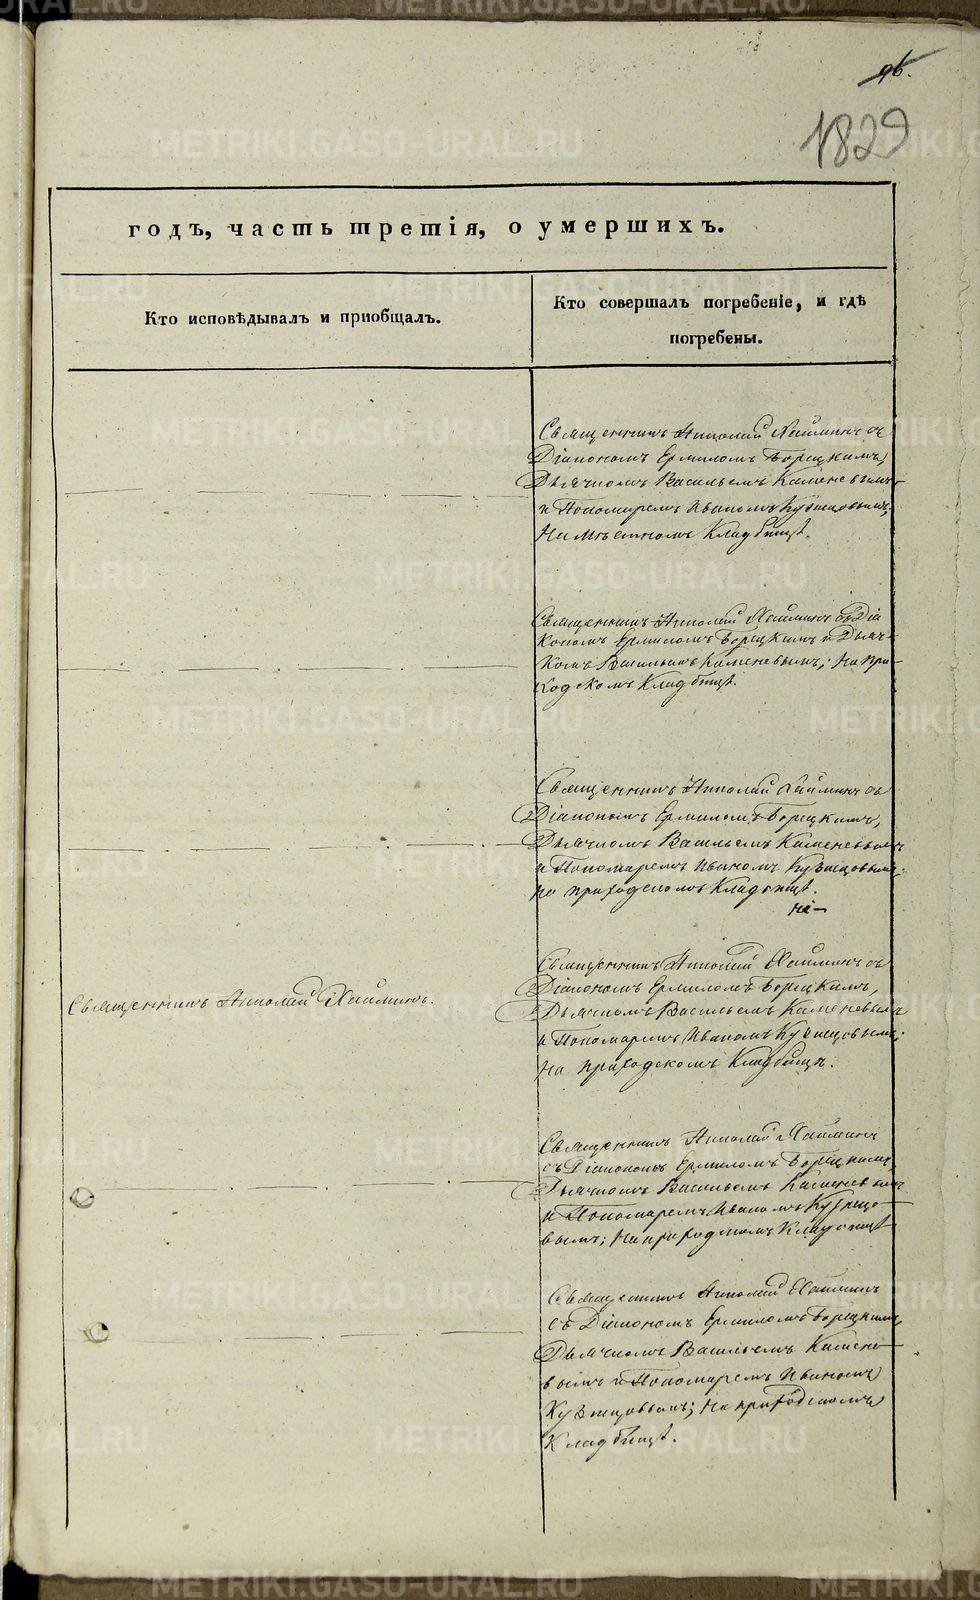 96.
1829
годъ, часть третія, о умершихъ.
Кто исповѣдывалъ и пріобщалъ.
Кто совершалъ погребеніе, и гдѣ
погребены.
Священникъ Николай Хайминъ съ
Діакономъ Ермиломъ Борецкимъ,
Дьячкомъ Васильемъ Каменевымъ
и Пономаремъ Иваномъ Кузнецовымъ,
На мѣстномъ Кладбищѣ.
Священникъ Николай Хайминъ съ Діа
кономъ Ермиломъ Борецкимъ и Дьяч-
комъ Васильемъ Каменевымъ; На при-
ходскомъ Кладбищѣ.
Священникъ Николай Хайминъ съ
Діакономъ Ермиломъ Борецкимъ,
Дьячкомъ Васильемъ Каменевымъ
и Пономаремъ Иваномъ Кузнецовымъ;
на приходскомъ Кладбищѣ.
на
Священникъ Николай Хайминъ.
Священникъ Николай Хайминъ съ
Діакономъ Ермиломъ Борецкимъ,
Дьячкомъ Васильемъ Каменевымъ
и Пономаремъ Иваномъ Кузнецовымъ;
На приходскомъ Кладбищѣ.
Священникъ Николай Хайминъ
съ Діакономъ Ермиломъ Борецкимъ,
Дьячкомъ Васильемъ Каменевымъ
и Пономаремъ Иваномъ Кузнецо
вымъ; На приходскомъ Кладбищѣ
Священникъ Николай Хайминъ
съ Діакономъ Ермиломъ Борецкимъ,
Дьячкомъ Васильемъ Камене
вымъ и Пономаремъ Иваномъ
Кузнецовымъ; На приходскомъ
Кладбищѣ.
METRIKI.GASO-URAL.RU